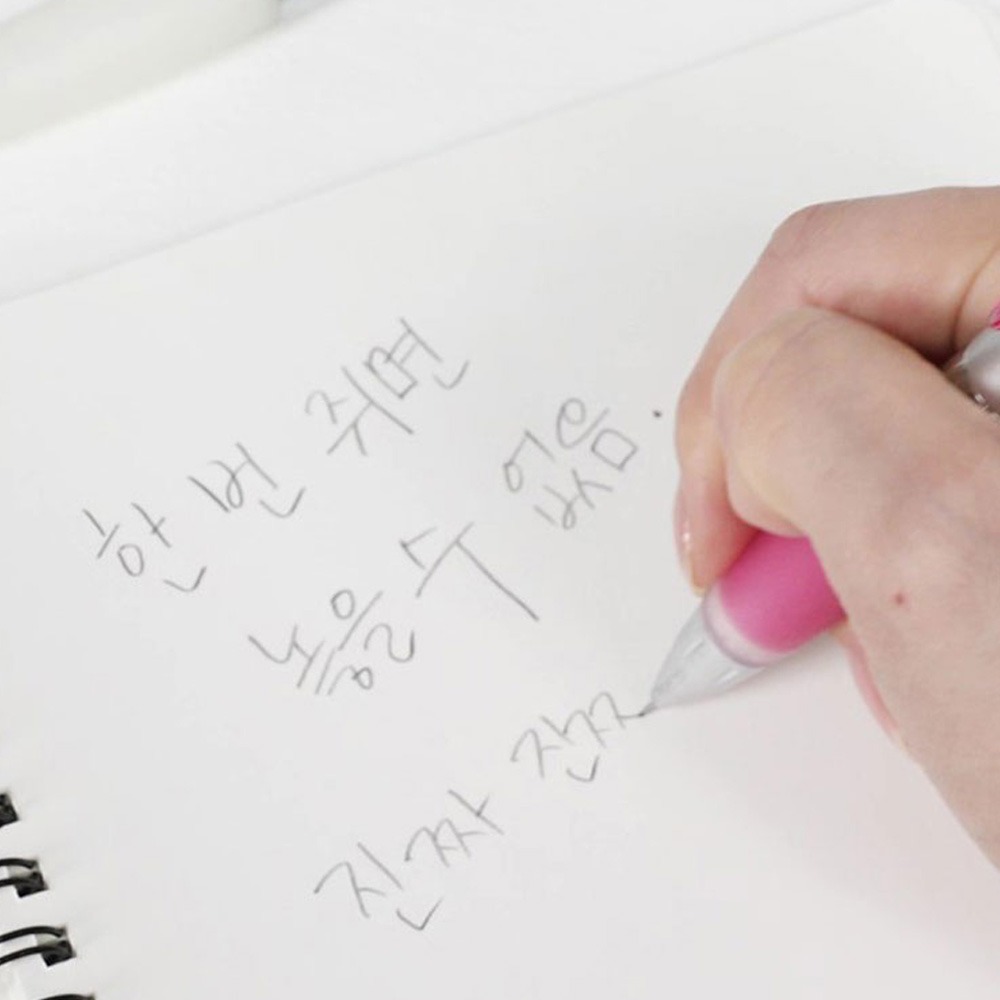 한 번 쥐면
놓을 수 없음.
진짜 진ㅉ